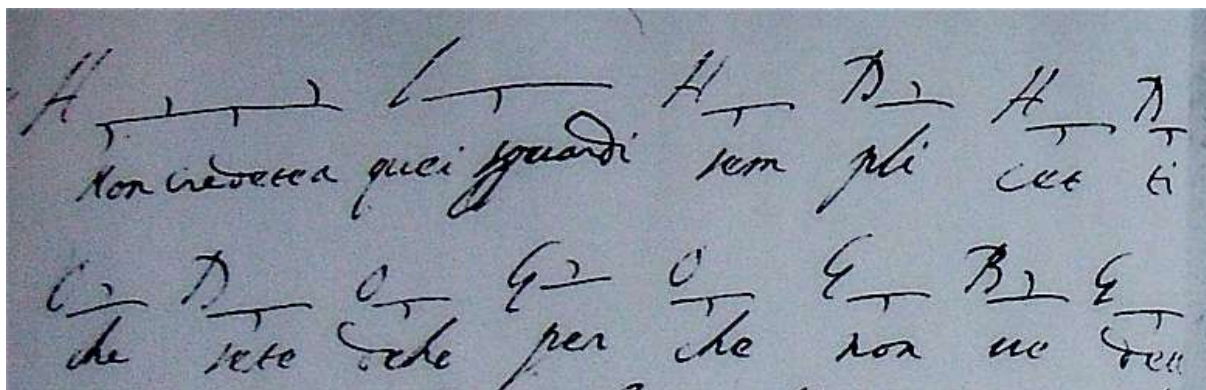 H H H
Non credetea quei sguardi sem pli cet ti
C D O G O G B G
che sete dehe per che non ue